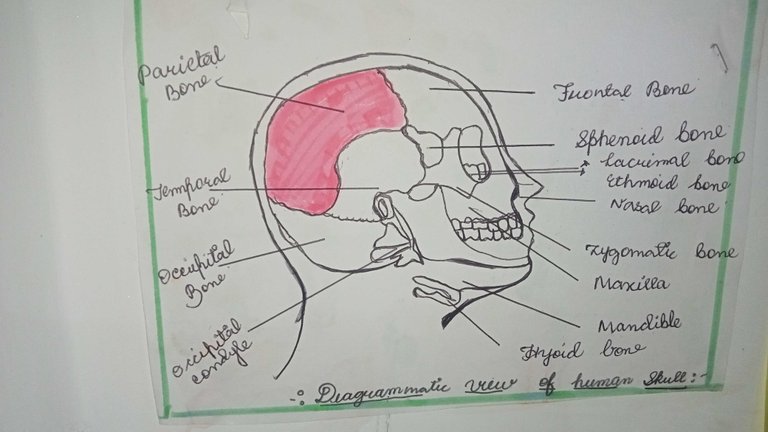 Parietal
Bone
Temporal
Bone
Occipital
Bone
Occipital
condyle
Frontal Bone
Sphenoid bone
Lacrimal bone
Ethmoid bone
Nasal bone
Zygomatic Bone
Maxilla
Mandible
Hyoid bone
-: Diagrammatic view of human Skull:-